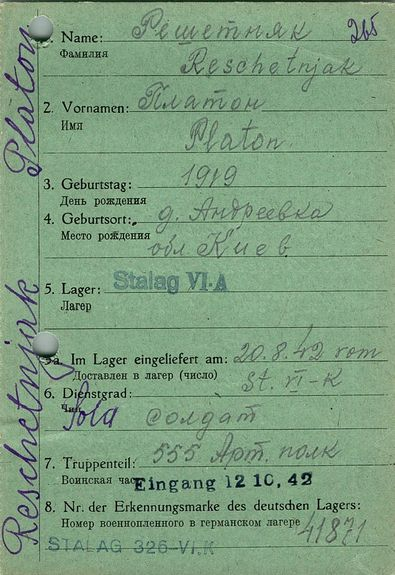 Reschetnjak Platon
1. Name: Решетняк 265
Фамилия
Reschetnjak
2. Vornamen: Платон
Имя
Platon
3. Geburtstag: 1919
День рождения
4. Geburtsort: д. Андреевка
Место рождения
обл Киев
5. Lager: Stalag VI-A
Лагерь
5a. Im Lager eingeliefert am: 20.8.42 vom
Доставлен в лагер (число) St. VI-K
6. Dienstgrad: солдат
Чин Sold
7. Truppenteil: 555 Арт. полк
Воинская част Eingang 12 10. 42
8. Nr. der Erkennungsmarke des deutschen Lagers:
Номер военнопленного в германском лагере 41871
STALAG 326-VI.K